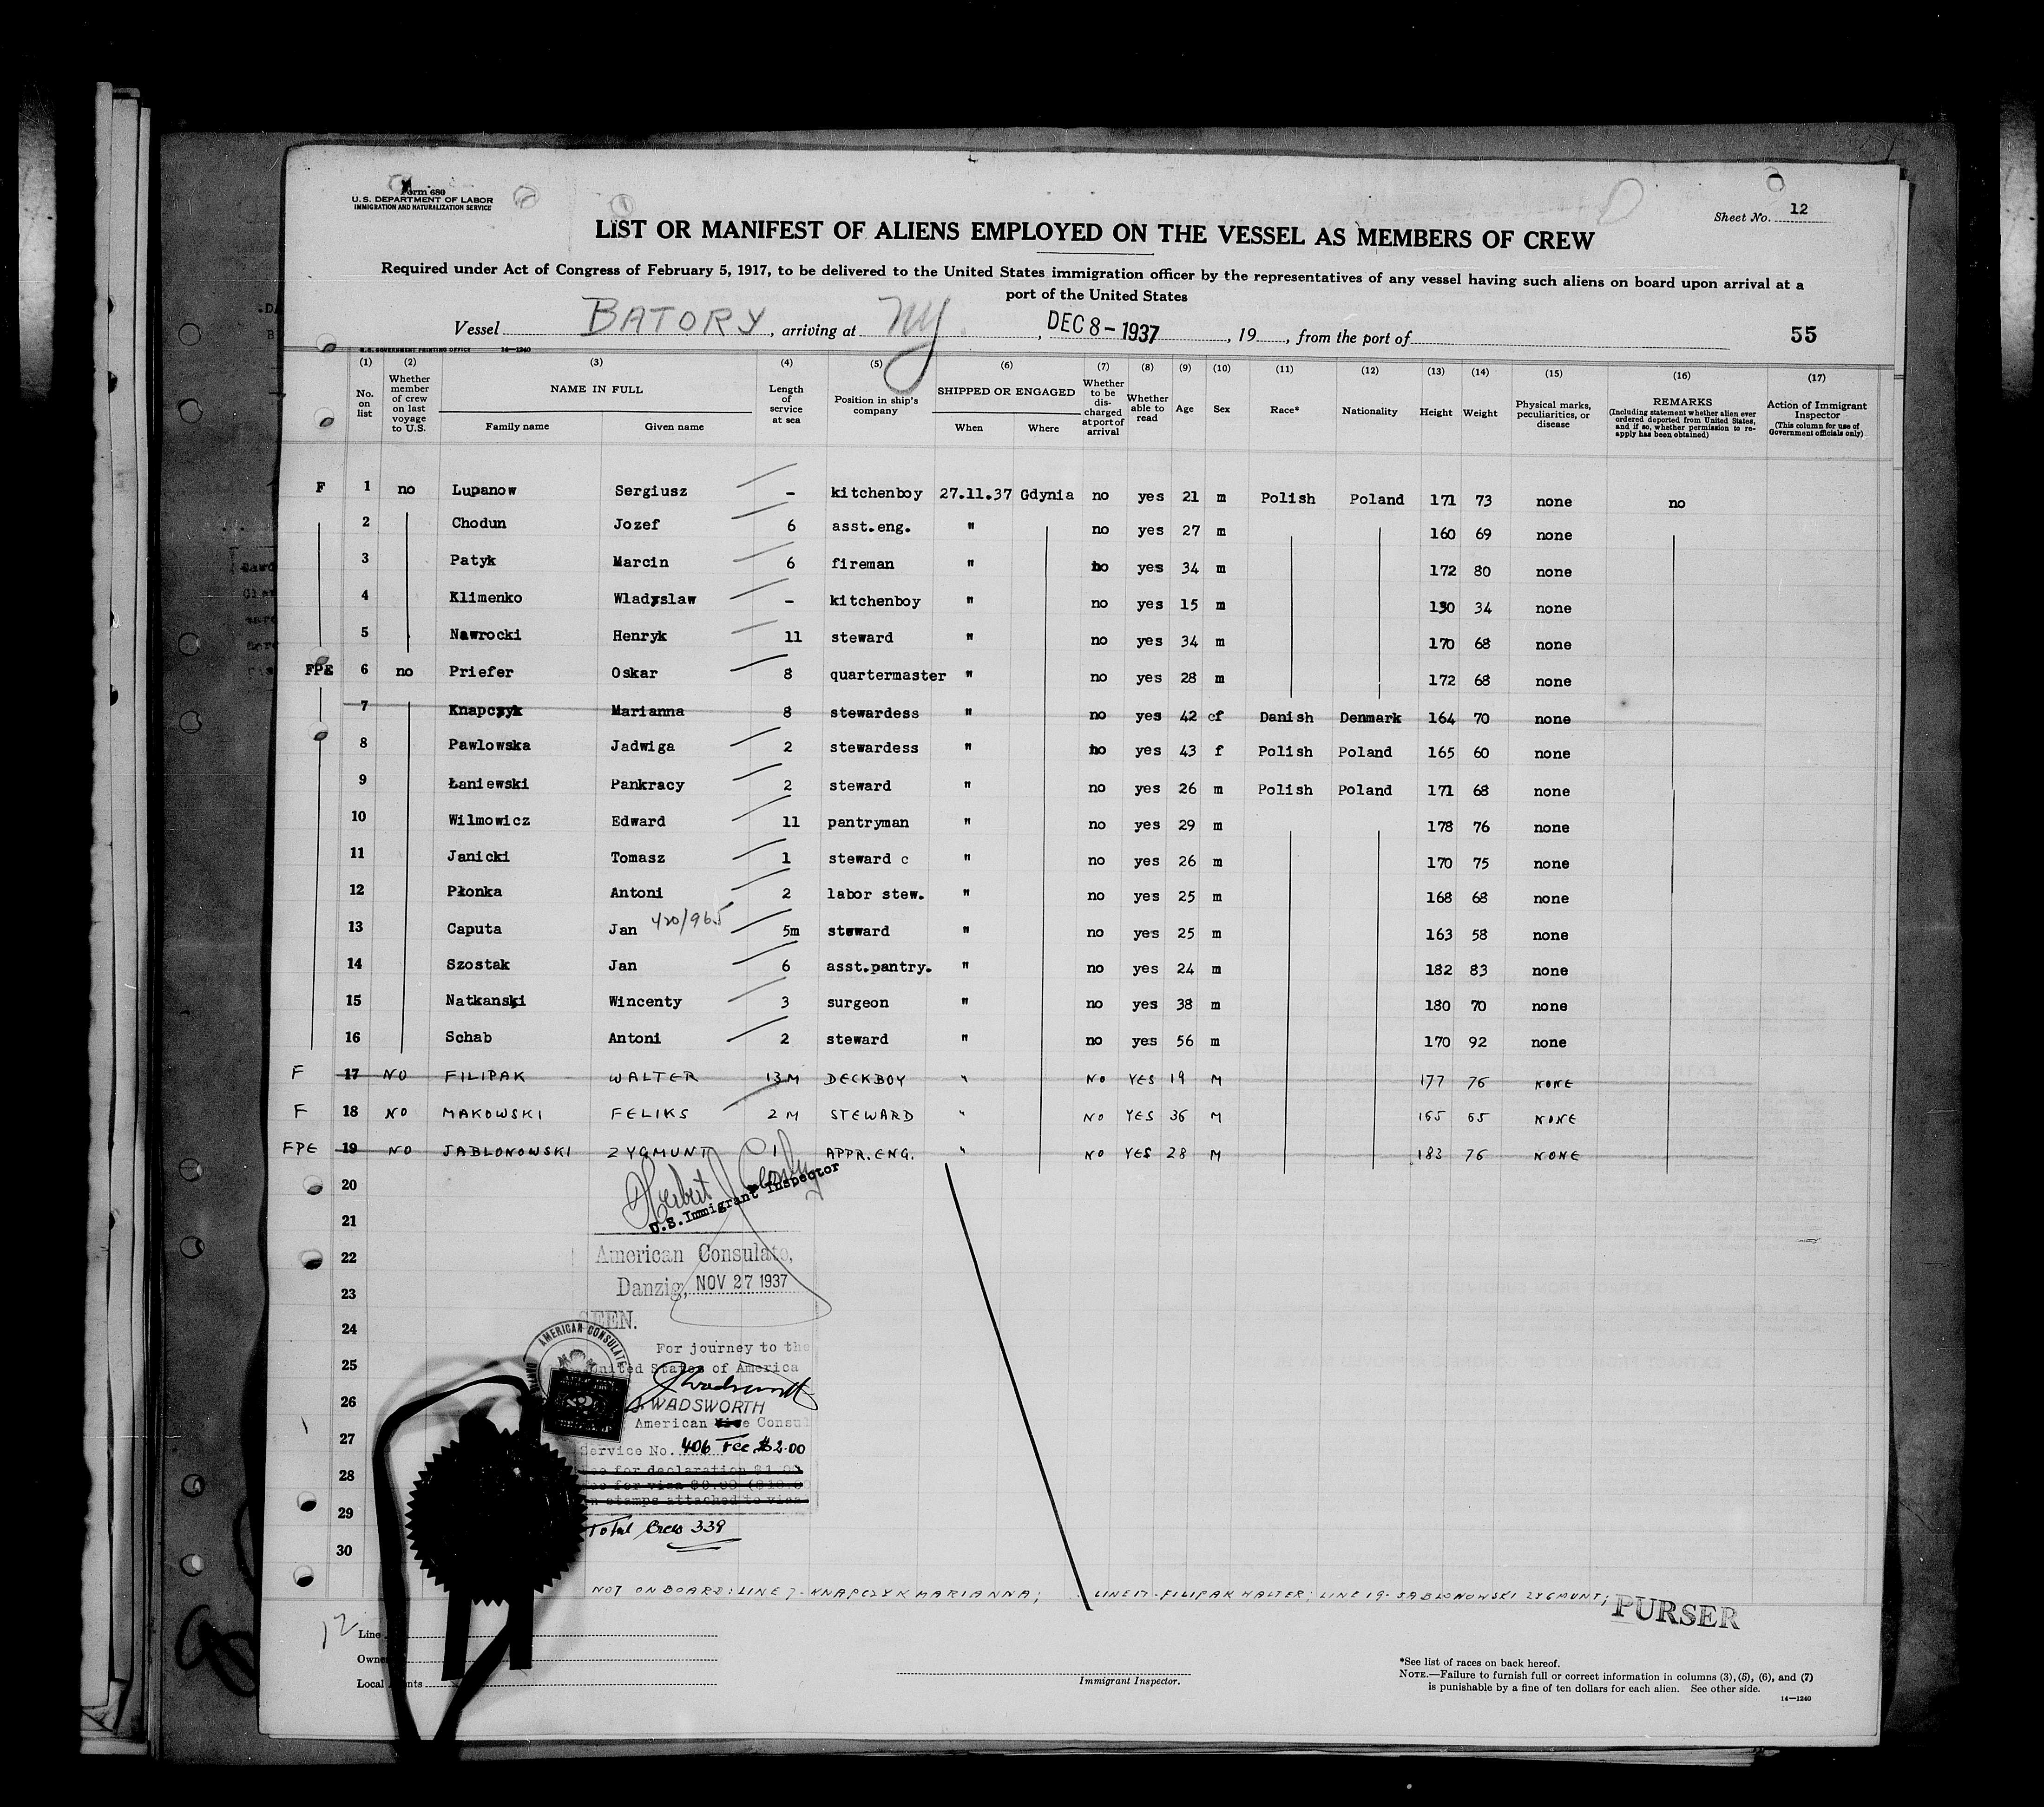 Form 680
U.S. DEPARTMENT OF LABOR
IMMIGRATION AND NATURALIZATION SERVICE
Sheet No. 12
LIST OR MANIFEST OF ALIENS EMPLOYED ON THE VESSEL AS MEMBERS OF CREW
Required under Act of Congress of February 5, 1917, to be delivered to the United States immigration officer by the representatives of any vessel having such aliens on board upon arrival at a
port of the United States
Vessel BATORY, arriving at NY, DEC 8-1937, 19, from the port of 55
U.S. GOVERNMENT PRINTING OFFICE 14—1240
(1) (2) (3) (4) (5) (6) (7) (8) (9) (10) (11) (12) (13) (14) (15) (16) (17)
No. on list
Whether member of crew on last voyage to U.S.
NAME IN FULL
Family name Given name
Length of service at sea
Position in ship's company
SHIPPED OR ENGAGED
When Where
Whether to be discharged at port of arrival
Whether able to read
Age Sex Race* Nationality Height Weight
Physical marks, peculiarities, or disease
REMARKS
(Including statement whether alien ever ordered deported from United States, and if so, whether permission to reapply has been obtained)
Action of Immigrant Inspector
(This column for use of Government officials only)
F 1 no Lupanow Sergiusz - kitchenboy 27.11.37 Gdynia no yes 21 m Polish Poland 171 73 none no
2 Chodun Jozef 6 asst.eng. " no yes 27 m 160 69 none
3 Patyk Marcin 6 fireman " no yes 34 m 172 80 none
4 Klimenko Wladyslaw - kitchenboy " no yes 15 m 130 34 none
5 Nawrocki Henryk 11 steward " no yes 34 m 170 68 none
FPE 6 no Priefer Oskar 8 quartermaster " no yes 28 m 172 68 none
7 Knapczyk Marianna 8 stewardess " no yes 42 f Danish Denmark 164 70 none
8 Pawlowska Jadwiga 2 stewardess " no yes 43 f Polish Poland 165 60 none
9 Łaniewski Pankracy 2 steward " no yes 26 m Polish Poland 171 68 none
10 Wilmowicz Edward 11 pantryman " no yes 29 m 178 76 none
11 Janicki Tomasz 1 steward c " no yes 26 m 170 75 none
12 Płonka Antoni 2 labor stew. " no yes 25 m 168 68 none
13 Caputa Jan 420/965 5m steward " no yes 25 m 163 58 none
14 Szostak Jan 6 asst.pantry. " no yes 24 m 182 83 none
15 Natkanski Wincenty 3 surgeon " no yes 38 m 180 70 none
16 Schab Antoni 2 steward " no yes 56 m 170 92 none
F 17 NO FILIPAK WALTER 13M DECKBOY " NO YES 19 M 177 76 NONE
F 18 NO MAKOWSKI FELIKS 2 M STEWARD " NO YES 36 M 165 65 NONE
FPE 19 NO JABLONOWSKI ZYGMUNT 1 APPR.ENG. " NO YES 28 M 183 76 NONE
20
Herbert
U.S. Immigrant Inspector
21
22
American Consulate,
23
Danzig, NOV 27 1937
SEEN.
24
AMERICAN CONSULATE
For journey to the
25
United States of America
26
J. WADSWORTH
American Vice Consul
27
Service No. 406 Fee $2.00
28
Fee for declaration $1.00
29
Total Crew 339
30
NOT ON BOARD: LINE 7- KNAPCZYK MARIANNA; LINE 17-FILIPAK WALTER; LINE 19- JABLONOWSKI ZYGMUNT;
PURSER
12
Line
Owner
Local Agents
Immigrant Inspector.
*See list of races on back hereof.
NOTE.—Failure to furnish full or correct information in columns (3), (5), (6), and (7)
is punishable by a fine of ten dollars for each alien. See other side.
14—1240